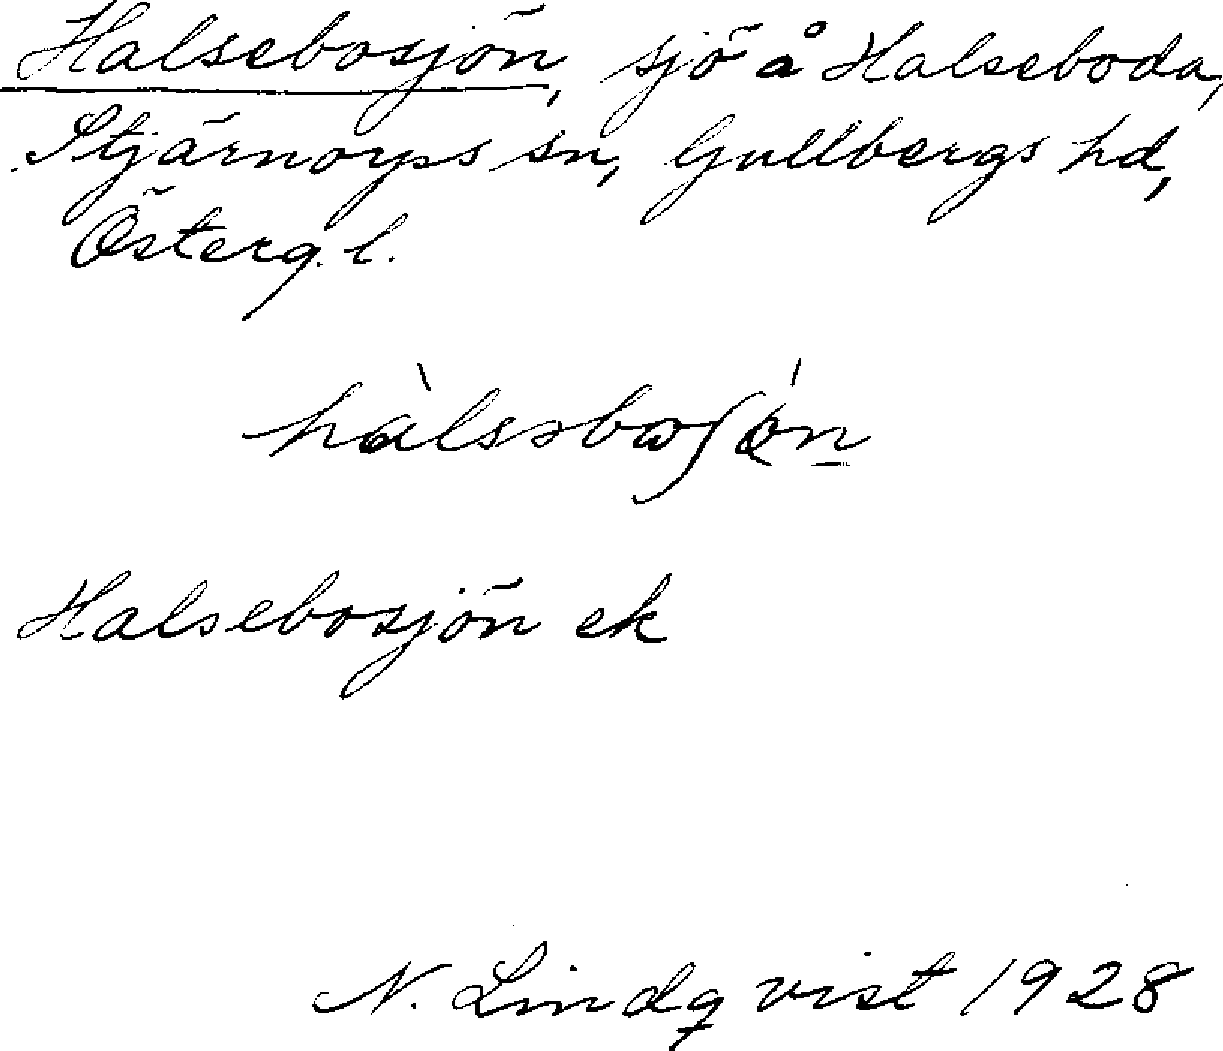 Halsebosjön, sjö å Halseboda,
Stjärnorps sn, Gullbergs hd,
Österg. l.
hàlsəboʃǿn
Halsebosjön ek
N. Lindqvist 1928